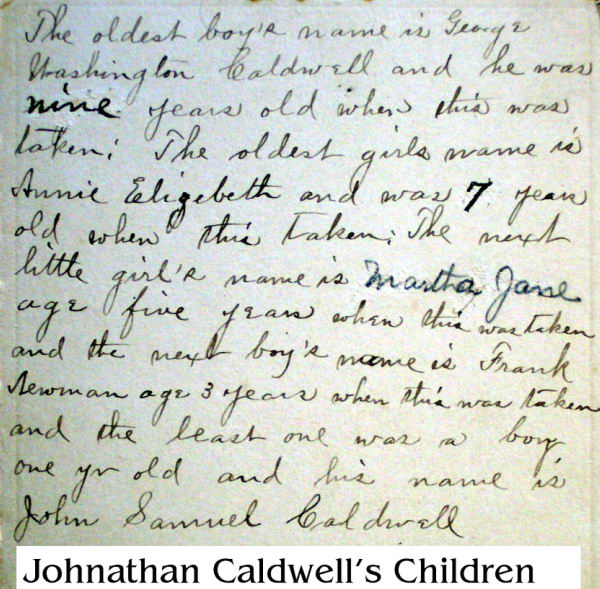 The oldest boy's name is George
Washington Caldwell and he was
nine years old when this was
taken; The oldest girls name is
Annie Eligebeth and was 7 years
old when this taken; The next
little girl's name is Martha Jane
age five years when this was taken
and the next boy's name is Frank
Newman age 3 years when this was taken
and the least one was a boy
one yr old and his name is
John Samuel Caldwell
Johnathan Caldwell's Children